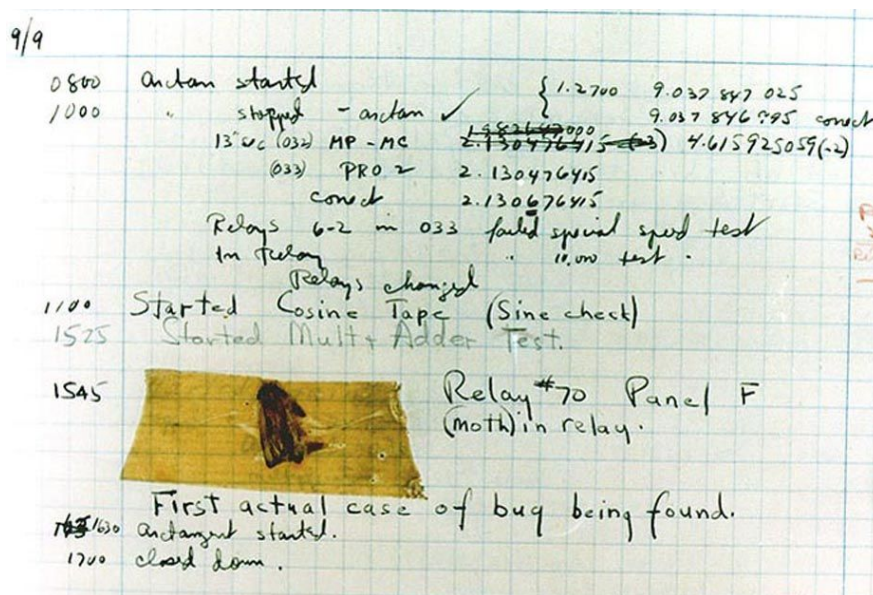 9/9
0800 arctan started { 1.2700 9.037 847 025
1000 " stopped - arctan ✓ 9.037 846 995 conect
13" uc (032) MP - MC 2.130476415 (-3) 4.615925059(-2)
(033) PRO 2 2.130476415
conect 2.130676415
Relays 6-2 in 033 failed special speed test
In Relay " 10.000 test .
Relays changed
1100 Started Cosine Tape (Sine check)
1525 Started Mult + Adder Test.
1545 Relay #70 Panel F
(moth) in relay.
First actual case of bug being found.
1630 arctangent started.
1700 closed down.